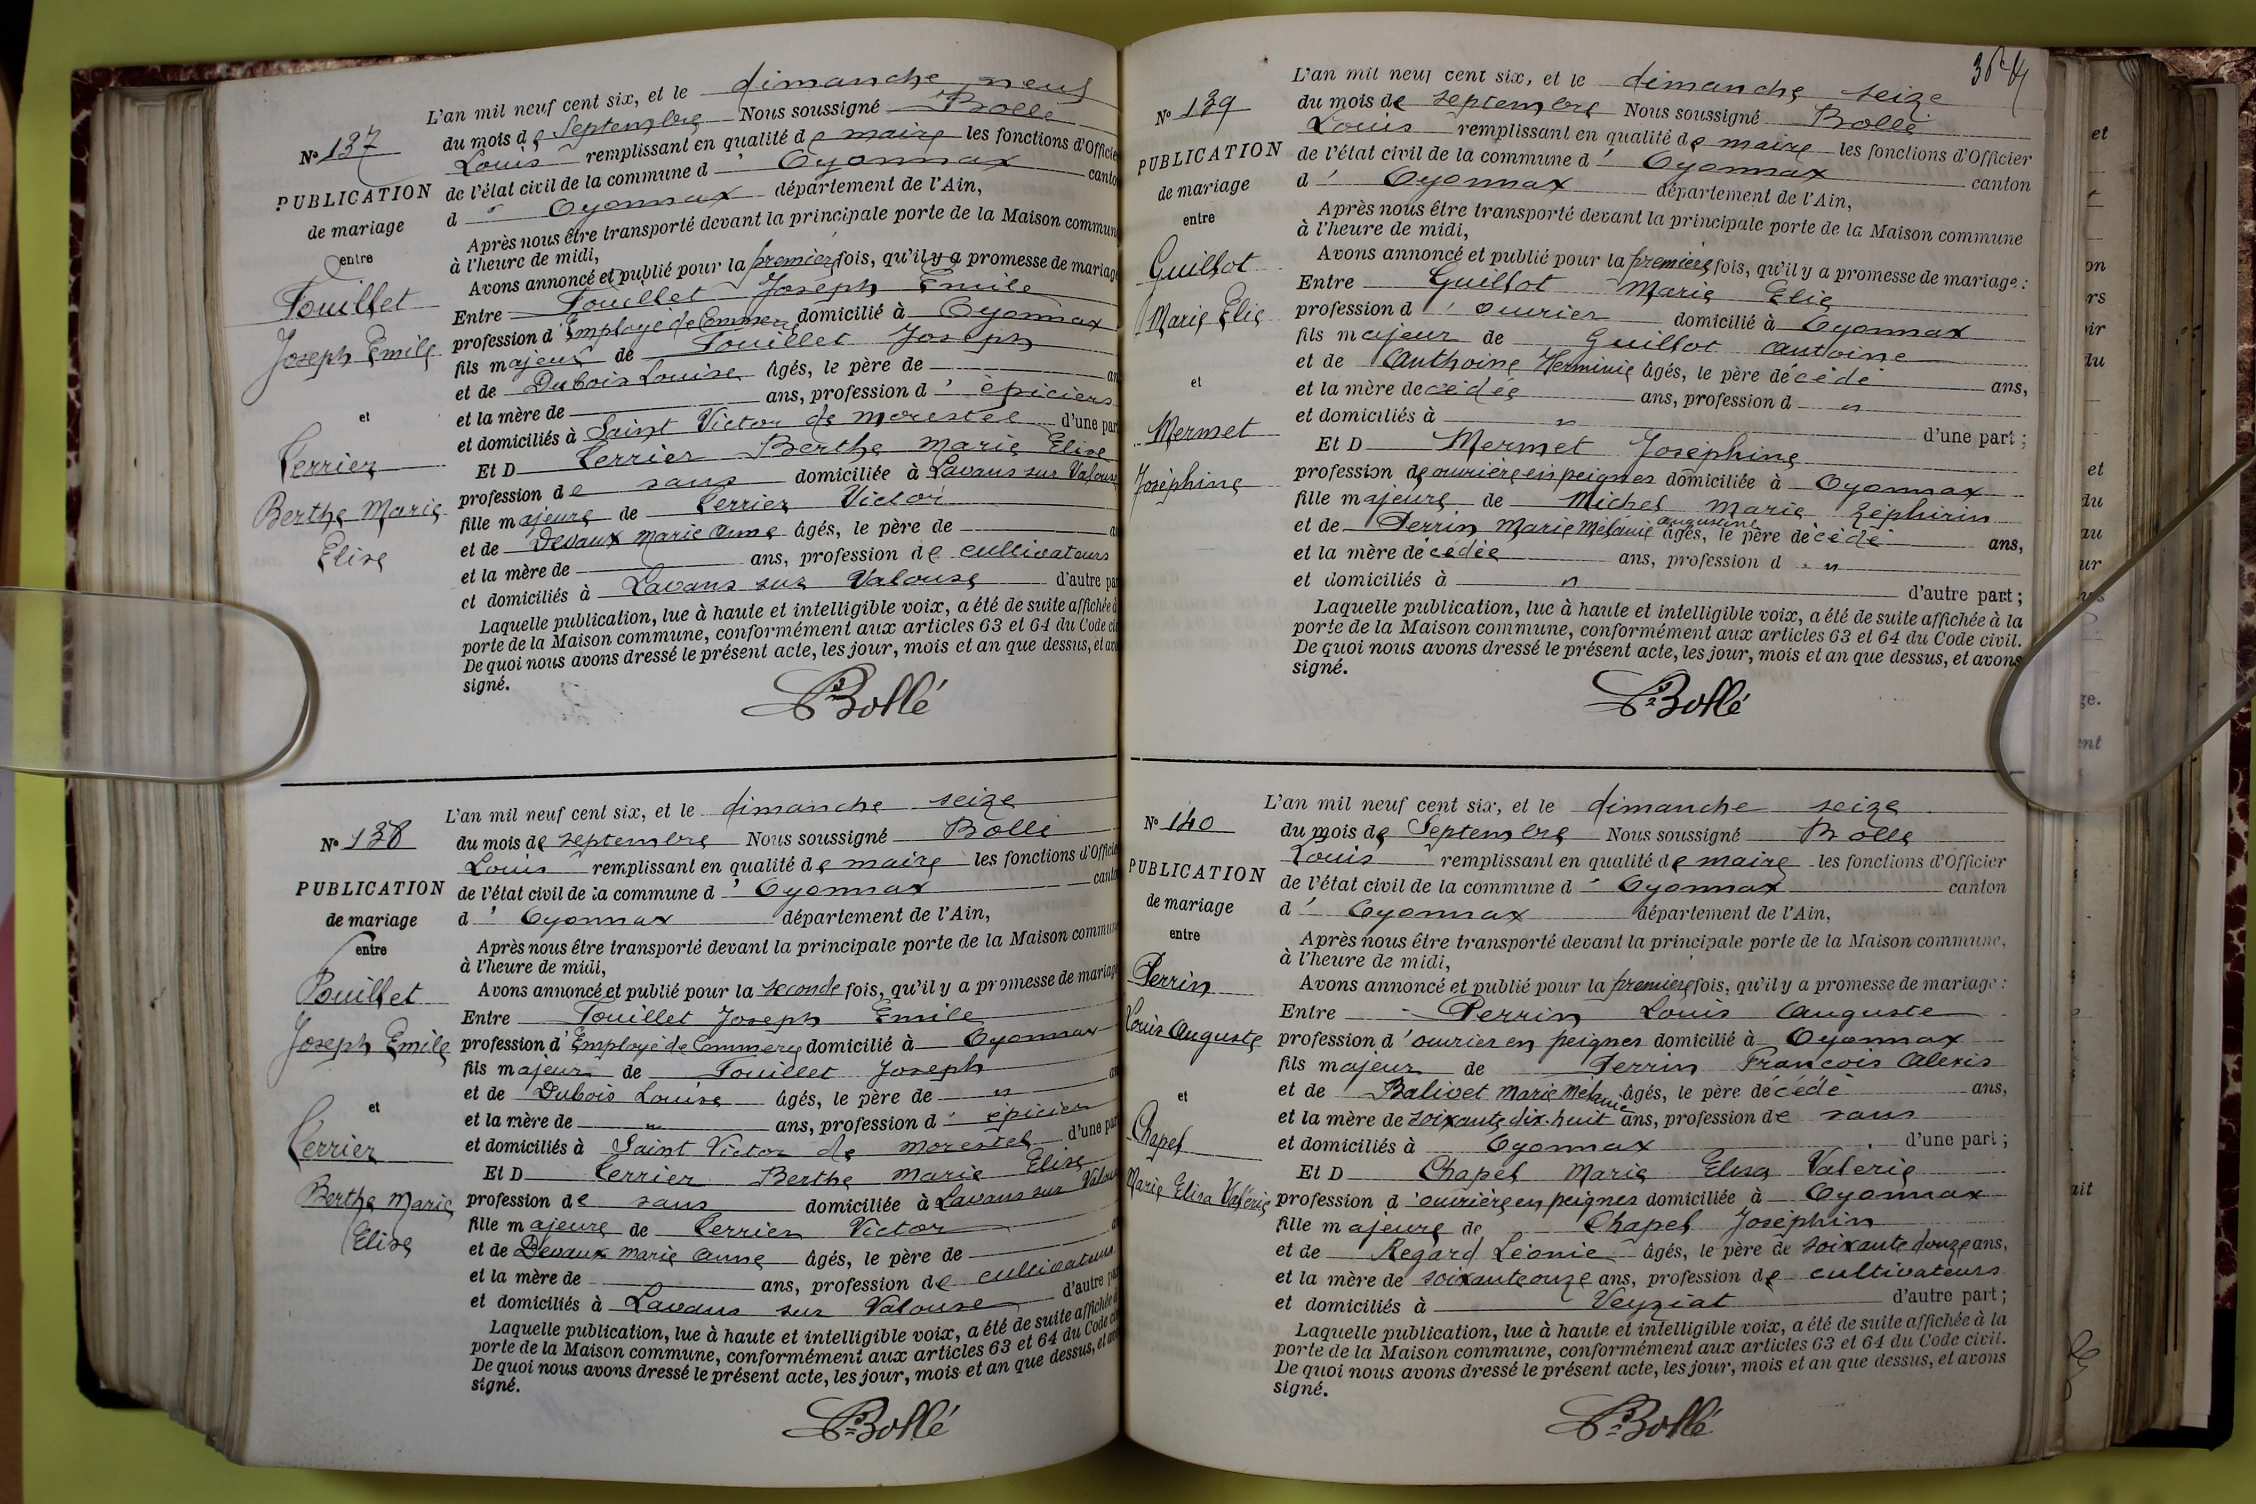 L'an mil neuf cent six, et le dimanche neuf
Nº 137
du mois de Septembre Nous soussigné Bollé
Louis remplissant en qualité de maire les fonctions d'Officie
PUBLICATION
de l'état civil de la commune d' Oyonnax canto
d' Oyonnax département de l'Ain,
de mariage
Après nous être transporté devant la principale porte de la Maison commun
entre
à l'heure de midi,
Avons annoncé et publié pour la première fois, qu'il y a promesse de mariag
Pouillet
Entre Pouillet Joseph Emile
profession d' Employé de Commerce domicilié à Oyonnax
Joseph Emile
fils majeur de Pouillet Joseph
et de Dubois Louise âgés, le père de an
et la mère de ans, profession d' épiciers
et
et domiciliés à Saint Victor de Morestel d'une par
Et D Perrier Berthe Marie Elise
Perrier
profession de sans domiciliée à Lavans sur Valouse
Berthe Marie
fille majeure de Perrier Victor
et de Devaux Marie Anne âgés, le père de a
Elise
et la mère de ans, profession de cultivateurs
et domiciliés à Lavans sur Valouse d'autre par
Laquelle publication, lue à haute et intelligible voix, a été de suite affichée à
porte de la Maison commune, conformément aux articles 63 et 64 du Code ci
De quoi nous avons dressé le présent acte, les jour, mois et an que dessus, et avo
signé.
Bollé
L'an mil neuf cent six, et le dimanche seize
Nº 138
du mois de septembre Nous soussigné Bollé
Louis remplissant en qualité de maire les fonctions d'Officie
PUBLICATION
de l'état civil de la commune d' Oyonnax canto
de mariage
d' Oyonnax département de l'Ain,
entre
Après nous être transporté devant la principale porte de la Maison commun
à l'heure de midi,
Pouillet
Avons annoncé et publié pour la seconde fois, qu'il y a promesse de mariag
Entre Pouillet Joseph Emile
Joseph Emile
profession d' Employé de Commerce domicilié à Oyonnax
fils majeur de Pouillet Joseph an
et de Dubois Louise âgés, le père de "
et
et la mère de " ans, profession d' épicier
et domiciliés à Saint Victor de Morestel d'une par
Perrier
Et D Perrier Berthe Marie Elise
Berthe Marie
profession de sans domiciliée à Lavans sur Valouse
fille majeure de Perrier Victor
Elise
et de Devaux Marie Anne âgés, le père de a
et la mère de ans, profession de cultivateurs
et domiciliés à Lavans sur Valouse d'autre par
Laquelle publication, lue à haute et intelligible voix, a été de suite affichée à
porte de la Maison commune, conformément aux articles 63 et 64 du Code ci
De quoi nous avons dressé le présent acte, les jour, mois et an que dessus, et avo
signé.
Bollé
L'an mil neuf cent six, et le dimanche seize
Nº 139
du mois de septembre Nous soussigné Bollé
Louis remplissant en qualité de maire les fonctions d'Officier
PUBLICATION
de l'état civil de la commune d' Oyonnax canton
de mariage
d' Oyonnax département de l'Ain,
entre
Après nous être transporté devant la principale porte de la Maison commune
à l'heure de midi,
Guillot
Avons annoncé et publié pour la première fois, qu'il y a promesse de mariage :
Entre Guillot Marie Elie
Marie Elie
profession d' ouvrier domicilié à Oyonnax
fils majeur de Guillot Antoine
et de Anthoine Herminie âgés, le père décédé ans,
et
et la mère décédée ans, profession d "
et domiciliés à " d'une part ;
Mermet
Et D Mermet Joséphine
Joséphine
profession de ouvrière en peignes domiciliée à Oyonnax
fille majeure de Michel Marie Zéphirin
et de Perrin Marie Mélanie augustine âgés, le père décédé ans,
et la mère décédée ans, profession d "
et domiciliés à " d'autre part ;
Laquelle publication, lue à haute et intelligible voix, a été de suite affichée à la
porte de la Maison commune, conformément aux articles 63 et 64 du Code civil.
De quoi nous avons dressé le présent acte, les jour, mois et an que dessus, et avons
signé.
Bollé
L'an mil neuf cent six, et le dimanche seize
Nº 140
du mois de Septembre Nous soussigné Bollé
Louis remplissant en qualité de maire les fonctions d'Officier
PUBLICATION
de l'état civil de la commune d' Oyonnax canton
de mariage
d' Oyonnax département de l'Ain,
entre
Après nous être transporté devant la principale porte de la Maison commune,
à l'heure de midi,
Perrin
Avons annoncé et publié pour la première fois, qu'il y a promesse de mariage :
Entre Perrin Louis Auguste
Louis Auguste
profession d' ouvrier en peignes domicilié à Oyonnax
fils majeur de Perrin François Alexis
et
et de Balivet Marie Mélanie âgés, le père décédé ans,
et la mère de soixante dix-huit ans, profession de sans
Chapel
et domiciliés à Oyonnax d'une part ;
Et D Chapel Marie Elisa Valérie
Marie Elisa Valérie
profession d' ouvrière en peignes domiciliée à Oyonnax
fille majeure de Chapel Joséphin
et de Regard Léonie âgés, le père de soixante douze ans,
et la mère de soixante onze ans, profession de cultivateurs
et domiciliés à Veyziat d'autre part ;
Laquelle publication, lue à haute et intelligible voix, a été de suite affichée à la
porte de la Maison commune, conformément aux articles 63 et 64 du Code civil.
De quoi nous avons dressé le présent acte, les jour, mois et an que dessus, et avons
signé.
Bollé